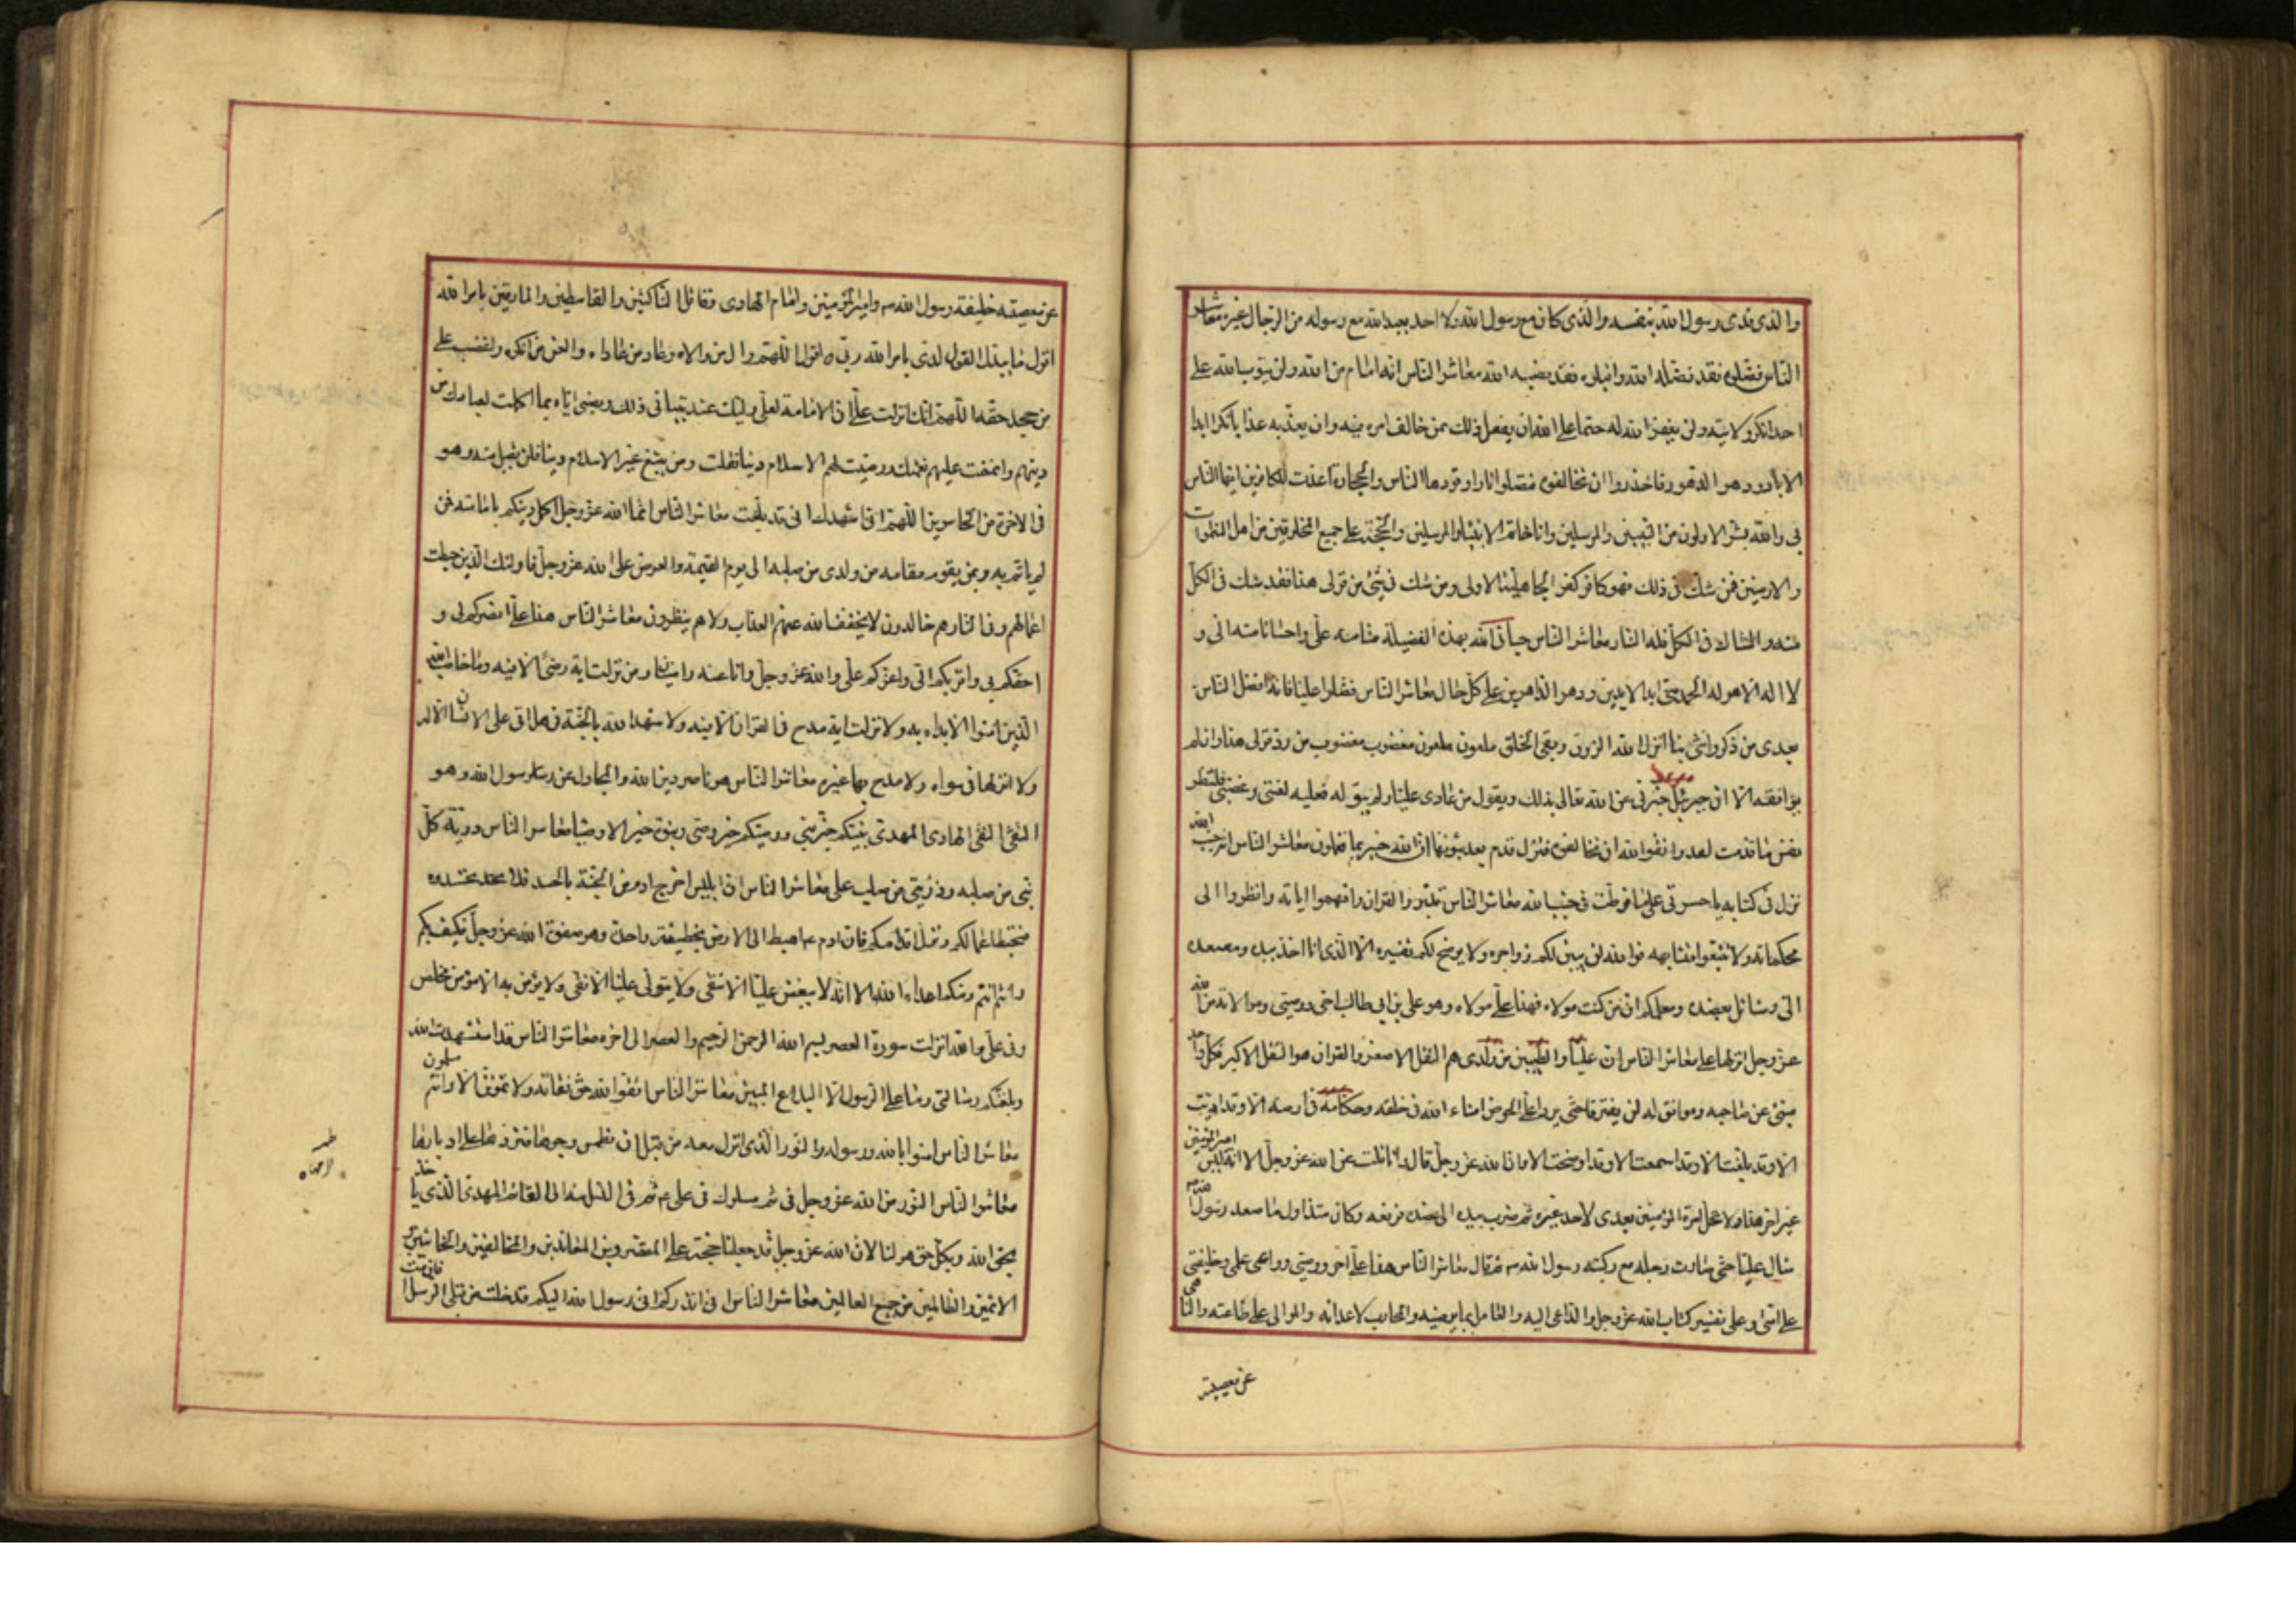 والذی فدی رسول الله بنفسه والذی كان مع رسول الله ولا احد يعبد الله مع رسوله من الرجال غيره معاشر
الناس فضلوه فقد فضله الله واقبلوه فقد نصبه الله معاشر الناس انه امام من الله ولن يتوب الله علی
احد انكر ولايته ولن يغفر الله له حتما علی الله ان يفعل ذلك بمن خالف امره فيه وان يعذبه عذابا نكرا ابدا
الاباد ودهر الدهور فاحذروا ان تخالفوه فتصلوا نارا وقودها الناس والحجارة اعدت للكافرين ايها الناس
بی والله بشر الاولون من النبيين والمرسلين وانا خاتم الانبياء والمرسلين والحجة علی جميع المخلوقين من اهل السموات
والارضين فمن شك فی ذلك فهو كافر كفر الجاهلية الاولی ومن شك فی شیء من قولی هذا فقد شك فی الكل
منه والشاك فی الكل فله النار معاشر الناس حبانی الله بهذه الفضيلة منا منه علی واحسانا منه الی و
لا اله الا هو له الحمد منی ابد الابدين ودهر الداهرين علی كل حال معاشر الناس فضلوا عليا فانه افضل الناس
بعدی من ذكر وانثی بنا انزل الله الرزق وبقی الخلق ملعون ملعون مغضوب مغضوب من رد قولی هذا وان لم
يوافقه الا ان جبرئيل خبرنی عن الله تعالی بذلك ويقول من عادی عليا ولم يتوله فعليه لعنتی وغضبی فلتنظر
نفس ما قدمت لغد واتقوا الله ان تخالفوه فتزل قدم بعد ثبوتها ان الله خبير بما تعملون معاشر الناس انه جنب الله
نزل فی كتابه يا حسرتی علی ما فرطت فی جنب الله معاشر الناس تدبروا القران وافهموا اياته وانظروا الی
محكماته ولا تتبعوا متشابهه فوالله لن يبين لكم زواجره ولا يوضح لكم تفسيره الا الذی انا اخذ بيده ومصعده
الی وشائل بعضده ومعلمكم ان من كنت مولاه فهذا علی مولاه وهو علی بن ابی طالب اخی ووصيی وموالاته من الله
عز وجل انزلها علی معاشر الناس ان عليا والطيبين من ولدی هم الثقل الاصغر والقران هو الثقل الاكبر فكل واحد
منبئ عن صاحبه وموافق له لن يفترقا حتی يردا علی الحوض امناء الله فی خلقه وحكامه فی ارضه الا وقد اديت
الا وقد بلغت الا وقد اسمعت الا وقد اوضحت الا وان الله عز وجل قال وانا قلت عن الله عز وجل الا انه ليس امير المؤمنين
غير اخی هذا ولا تحل امرة المؤمنين بعدی لاحد غيره ثم ضرب بيده الی عضده فرفعه وكان منذ اول ما صعد رسول الله
شال عليا حتی صارت رجله مع ركبته رسول الله ثم قال معاشر الناس هذا علی اخی ووصيی وواعی علمی وخليفتی
علی امتی وعلی تفسير كتاب الله عز وجل والداعی اليه والعامل بما يرضيه والمحارب لاعدائه والموالی علی طاعته والناهی
عن معصيته
عن معصيته خليفة رسول الله وامير المؤمنين وامام الهادی وقاتل الناكثين والقاسطين والمارقين بامر الله
اقول ما يبدل القول لدی بامر الله ربی اقول اللهم وال من والاه وعاد من عاداه والعن من انكره واغضب علی
من جحد حقه اللهم انك انزلت علی ان الامامة لعلی وليك عند تبيانی ذلك ونصبی اياه بما اكملت لعبادك من
دينهم واتممت عليهم نعمتك ورضيت لهم الاسلام دينا فقلت ومن يبتغ غير الاسلام دينا فلن يقبل منه وهو
فی الاخرة من الخاسرين اللهم انی اشهدك انی قد بلغت معاشر الناس انما الله عز وجل اكمل دينكم بامامته فمن
لم ياتم به وبمن يقوم مقامه من ولدی من صلبه الی يوم القيمة والعرض علی الله عز وجل فاولئك الذين حبطت
اعمالهم وفی النار هم خالدون لا يخفف الله عنهم العذاب ولا هم ينظرون معاشر الناس هذا علی انصركم لی و
احقكم بی واقربكم الی واعزكم علی والله عز وجل وانا عنه راضيان ومن نزلت اية رضی الا فيه وما خاطب الله
الذين امنوا الا بداه به ولا نزلت اية مدح فی القران الا فيه ولا شهد الله بالجنة فی هل اتی علی الانسان الا له
ولا انزلها فی سواه ولا مدح بها غيره معاشر الناس هو ناصر دين الله والمجادل عن رسول الله وهو
التقی النقی الهادی المهدی نبيكم خير نبی ووصيكم خير وصی وبنوه خير الاوصياء معاشر الناس ذرية كل
نبی من صلبه وذريتی من صلب علی معاشر الناس ان ابليس اخرج ادم من الجنة بالحسد فلا تحسدوه
فتحبط اعمالكم وتزل اقدامكم فان ادم اهبط الی الارض بخطيئة واحدة وهو صفوة الله عز وجل فكيف بكم
وانتم انتم ومنكم اعداء الله الا انه لا يبغض عليا الا شقی ولا يتولی عليا الا تقی ولا يؤمن به الا مؤمن مخلص
وفی علی والله انزلت سورة العصر بسم الله الرحمن الرحيم والعصر الی اخره معاشر الناس قد استشهدت الله
وبلغتكم رسالتی وما علی الرسول الا البلاغ المبين معاشر الناس اتقوا الله حق تقاته ولا تموتن الا وانتم مسلمون
معاشر الناس امنوا بالله ورسوله والنور الذی انزل معه من قبل ان نطمس وجوها فنردها علی ادبارها
معاشر الناس النور من الله عز وجل فی ثم مسلوك فی علی ثم فی النسل منه الی القائم المهدی الذی ياخذ
بحق الله وبكل حق هو لنا لان الله عز وجل قد جعلنا حجة علی المقصرين والمعاندين والمخالفين والخائنين
الاثمين والظالمين من جميع العالمين معاشر الناس انی انذركم انی رسول الله اليكم قد خلت من قبلی الرسل افان مت